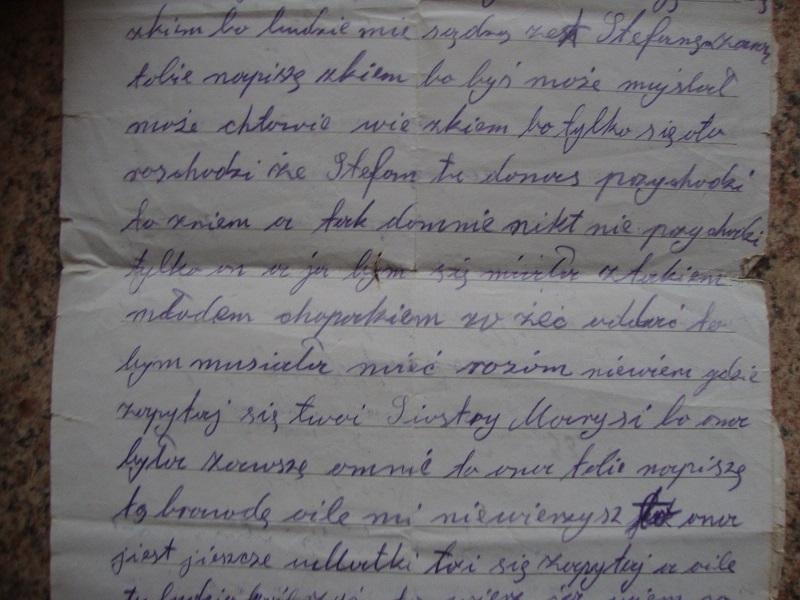 zkiem bo ludzie mie sądzą zest Stefanem
tobie napiszę zkiem bo byś może myślał
może chłowie wie zkiem bo tylko się oto
roschodzi że Stefam tu donas przychodzi
to zniem a tak domnie nikt nie przychodzi
tylko on a ja bym się miała ztakiem
młodem chopakiem zo żeć oddać to
bym musiała mieć rozóm niewiem gdzie
zapytaj się twoi Siostry Marysi bo ona
była zawszę omnie to ona tobie napiszę
tą brawdę oile mi niewierzysz ona
jiest jieszcze uMatki toi się zapytaj a oile
ty ludzią to wiem